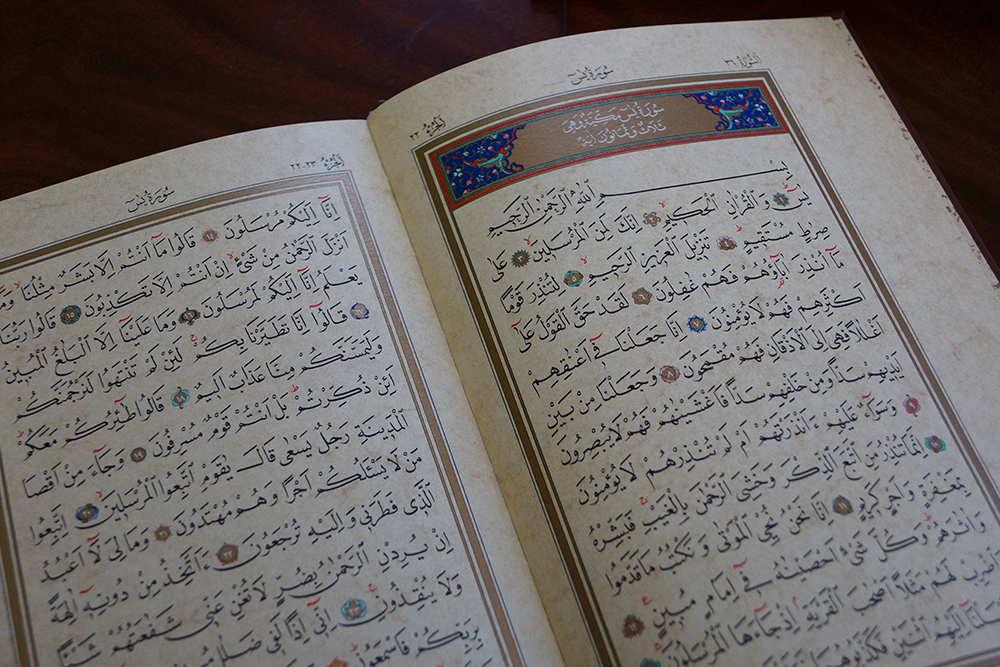 السورة ٣٦
سورة يس
الجزء ٢٢
سورة يس مكية وهي
ثلاث وثمانون آية
بِسْمِ اللّٰهِ الرَّحْمٰنِ الرَّحِيمِ
يٰسٓ ١ وَالْقُرْاٰنِ الْحَكِيمِ ٢ اِنَّكَ لَمِنَ الْمُرْسَلِينَ ٣ عَلٰى
صِرَاطٍ مُسْتَقِيمٍ ٤ تَنْزِيلَ الْعَزِيزِ الرَّحِيمِ ٥ لِتُنْذِرَ قَوْمًا
مَٓا اُنْذِرَ اٰبَٓاؤُهُمْ فَهُمْ غَافِلُونَ ٦ لَقَدْ حَقَّ الْقَوْلُ عَلٰٓى
اَكْثَرِهِمْ فَهُمْ لَا يُؤْمِنُونَ ٧ اِنَّا جَعَلْنَا فٓى اَعْنَاقِهِمْ
اَغْلَالًا فَهِىَ اِلَى الْاَذْقَانِ فَهُمْ مُقْمَحُونَ ٨ وَجَعَلْنَا مِنْ بَيْنِ
اَيْدِيهِمْ سَدًّا وَمِنْ خَلْفِهِمْ سَدًّا فَاَغْشَيْنَاهُمْ فَهُمْ لَا يُبْصِرُونَ ٩
وَسَوَٓاءٌ عَلَيْهِمْ ءَاَنْذَرْتَهُمْ اَمْ لَمْ تُنْذِرْهُمْ لَا يُؤْمِنُونَ ١٠
اِنَّمَا تُنْذِرُ مَنِ اتَّبَعَ الذِّكْرَ وَخَشِىَ الرَّحْمٰنَ بِالْغَيْبِ فَبَشِّرْهُ
بِمَغْفِرَةٍ وَاَجْرٍ كَرِيمٍ ١١ اِنَّا نَحْنُ نُحْيِ الْمَوْتٰى وَنَكْتُبُ مَا قَدَّمُوا
وَاٰثَارَهُمْ وَكُلَّ شَىْءٍ اَحْصَيْنَاهُ فٓى اِمَامٍ مُبِينٍ ١٢
وَاضْرِبْ لَهُمْ مَثَلًا اَصْحَابَ الْقَرْيَةِ اِذْ جَٓاءَهَا الْمُرْسَلُونَ
اِلَيْهِمُ اثْنَيْنِ
الجزء ٢٢-٢٣
سورة يس
اِنَّٓا اِلَيْكُمْ مُرْسَلُونَ ١٤ قَالُوا مَٓا اَنْتُمْ اِلَّا بَشَرٌ مِثْلُنَا وَمَٓا
اَنْزَلَ الرَّحْمٰنُ مِنْ شَىْءٍ اِنْ اَنْتُمْ اِلَّا تَكْذِبُونَ ١٥ قَالُوا رَبُّنَا
يَعْلَمُ اِنَّٓا اِلَيْكُمْ لَمُرْسَلُونَ ١٦ وَمَا عَلَيْنَٓا اِلَّا الْبَلَاغُ الْمُبِينُ
١٧ قَالُٓوا اِنَّا تَطَيَّرْنَا بِكُمْ لَئِنْ لَمْ تَنْتَهُوا لَنَرْجُمَنَّكُمْ
وَلَيَمَسَّنَّكُمْ مِنَّا عَذَابٌ اَلِيمٌ ١٨ قَالُوا طَٓائِرُكُمْ مَعَكُمْ
اَئِنْ ذُكِّرْتُمْ بَلْ اَنْتُمْ قَوْمٌ مُسْرِفُونَ ١٩ وَجَٓاءَ مِنْ اَقْصَا
الْمَدِينَةِ رَجُلٌ يَسْعٰى قَالَ يَا قَوْمِ اتَّبِعُوا الْمُرْسَلِينَ ٢٠ اِتَّبِعُوا
مَنْ لَا يَسْـَٔلُكُمْ اَجْرًا وَهُمْ مُهْتَدُونَ ٢١ وَمَا لِىَ لَٓا اَعْبُدُ
الَّذٖى فَطَرَنٖى وَاِلَيْهِ تُرْجَعُونَ ٢٢ ءَاَتَّخِذُ مِنْ دُونِهٖٓ اٰلِهَةً
اِنْ يُرِدْنِ الرَّحْمٰنُ بِضُرٍّ لَا تُغْنِ عَنّٖى شَفَاعَتُهُمْ شَيْـًٔا
وَلَا يُنْقِذُونِ ٢٣ اِنّٖٓى اِذًا لَفٖى ضَلَالٍ
بِرَبِّكُمْ فَاسْمَعُونِ